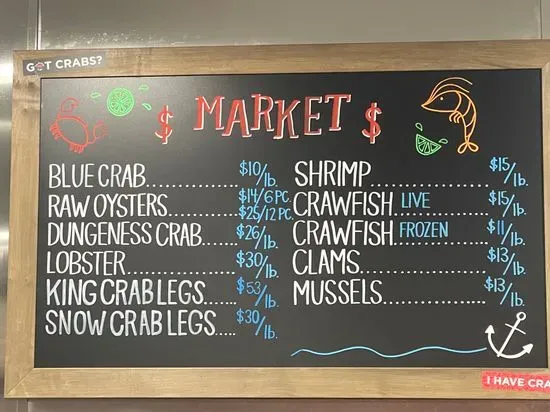 GOT CRABS?
$ MARKET $
BLUE CRAB.............. $10/lb.
RAW OYSTERS......... $14/6 PC.
$25/12 PC.
DUNGENESS CRAB...... $26/lb.
LOBSTER................ $30/lb.
KING CRAB LEGS...... $53/lb.
SNOW CRAB LEGS.... $30/lb.
SHRIMP.................. $15/lb.
CRAWFISH LIVE ......... $15/lb.
CRAWFISH FROZEN ...... $11/lb.
CLAMS................... $13/lb.
MUSSELS................ $13/lb.
I HAVE CRA